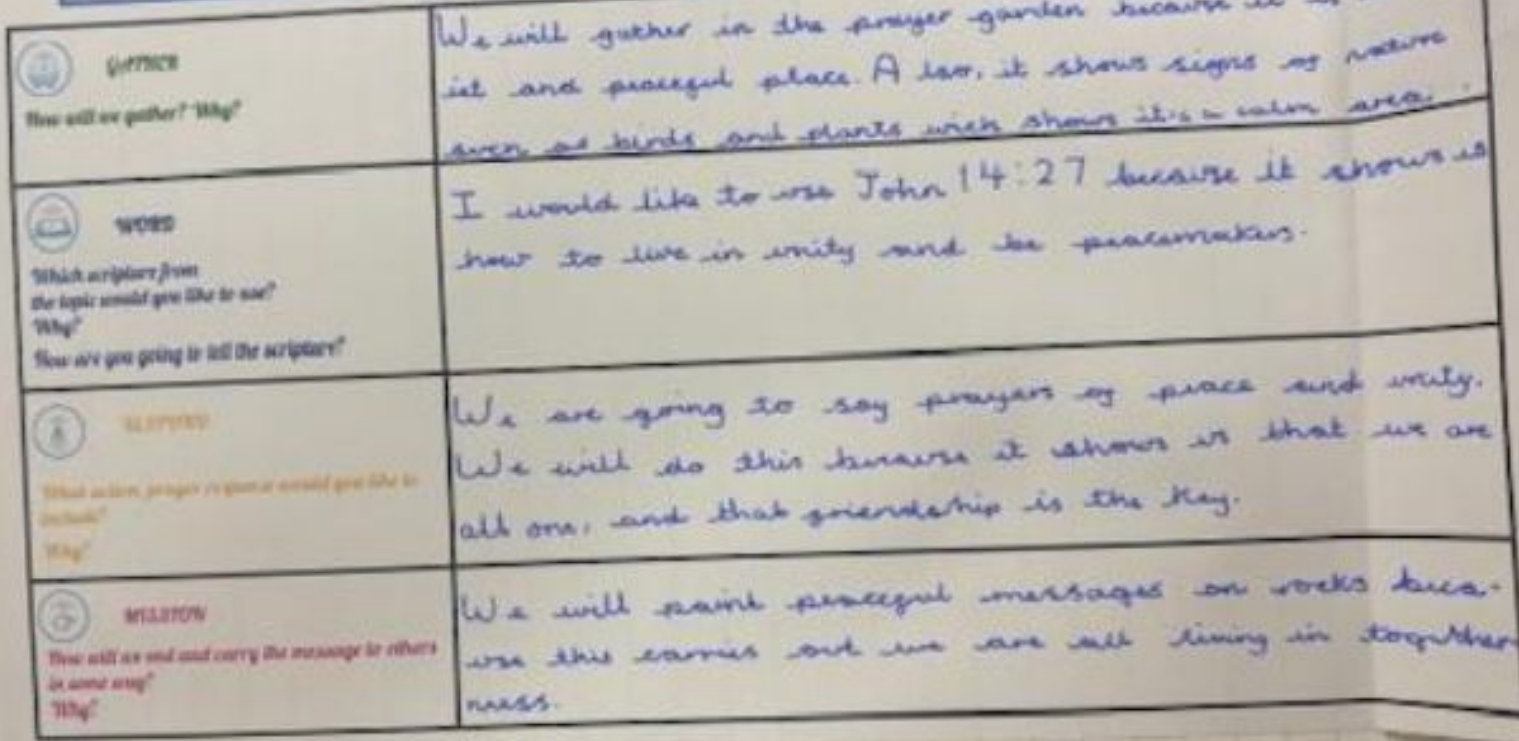 GATHER
How will we gather? Why?
We will gather in the prayer garden because it
iet and peaceful place. Also, it shows signs of nature
such as birds and plants wich shows it's a calm area.
WORD
Which scripture from
the topic would you like to use?
Why?
How are you going to tell the scripture?
I would like to use John 14:27 because it shows us
how to live in unity and be peacemakers.
RESPOND
What action, prayer response would you like to
include?
Why?
We are going to say prayers of peace and unity.
We will do this because it shows us that we are
all one, and that friendship is the key.
MISSION
How will we end and carry the message to others
in some way?
Why?
We will paint peaceful messages on rocks beca-
use this carries out we are all living in together
ness.